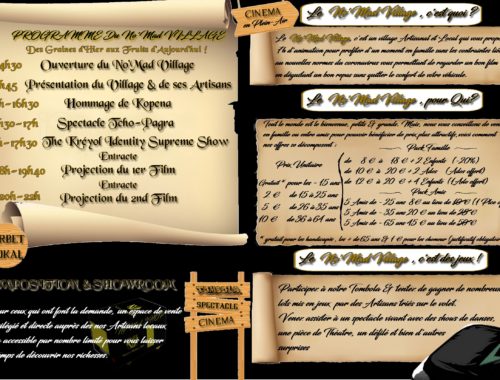 PROGRAMME Du No'Mad VILLAGE
Des Graines d'Hier aux Fruits d'Aujourd'hui !
4h30 Ouverture du No'Mad Village
h45 Présentation du Village & de ses Artisans
h-16h30 Hommage de Kopena
h30-17h Spectacle Tcho-Pagra
h30-17h30 The Kréyol Identity Supreme Show
Entracte
8h-19h40 Projection du 1er Film
Entracte
20h-22h Projection du 2nd Film
RBET
OKAL
MPOSITION & SHOWROOM
ur ceux qui ont font la demande, un espace de vente
ilégié et directe auprès des nos Artisans locaux
accessible par nombre limité pour vous laisser
emps de découvrir nos richesses.
SPECTACLE
CINEMA
CINEMA
en Plein Air
Le No'Mad Village, c'est quoi ?
Le No'Mad Village, c'est un village Artisanal & Local qui vous propo
7h d'animation pour profiter d'un moment en famille sans les contraintes dûes
au nouvelles normes du coronavirus vous permettant de regarder un bon film
en dégustant un bon repas sans quitter le confort de votre véhicule.
Le No'Mad Village, pour Qui?
Tout le monde est le bienvenue, petits & grands. Mais, nous vous conseillons de venir
en famille ou entre amis pour pouvoir bénéficier de prix plus attractifs, voici comment
nos offres se décomposent :
Pack Famille
Prix Unitaire
de 8 € à 18 € + 2 Enfants (-20%)
de 10 € à 20 € + 2 Ados (Ados offert)
de 12 € à 20 € + 4 Enfants (1 Ados offert)
Gratuit * pour les - 15 ans
2 € de 15 à 25 ans
5 € de 26 à 35 ans
10 € de 36 à 64 ans
Pack Amis
5 Amis de -25 ans 8€ au lieu de 10 €
5 Amis -35 ans 20 € au lieu de 25€
5 Amis - 65 ans 45 € au lieu de 50€
* gratuit pour les handicapés, les + de 65 ans & 1 € pour les chomeur (justificatif obligatoire)
Le No'Mad Village, c'est des jeux !
Participez à notre Tombola & tentez de gagner de nombreux
lots mis en jeux par des Artisans triés sur le volet.
Venez assister à un spectacle vivant avec des shows de danses,
une pièce de Théatre, un défilé et bien d'autres
surprises